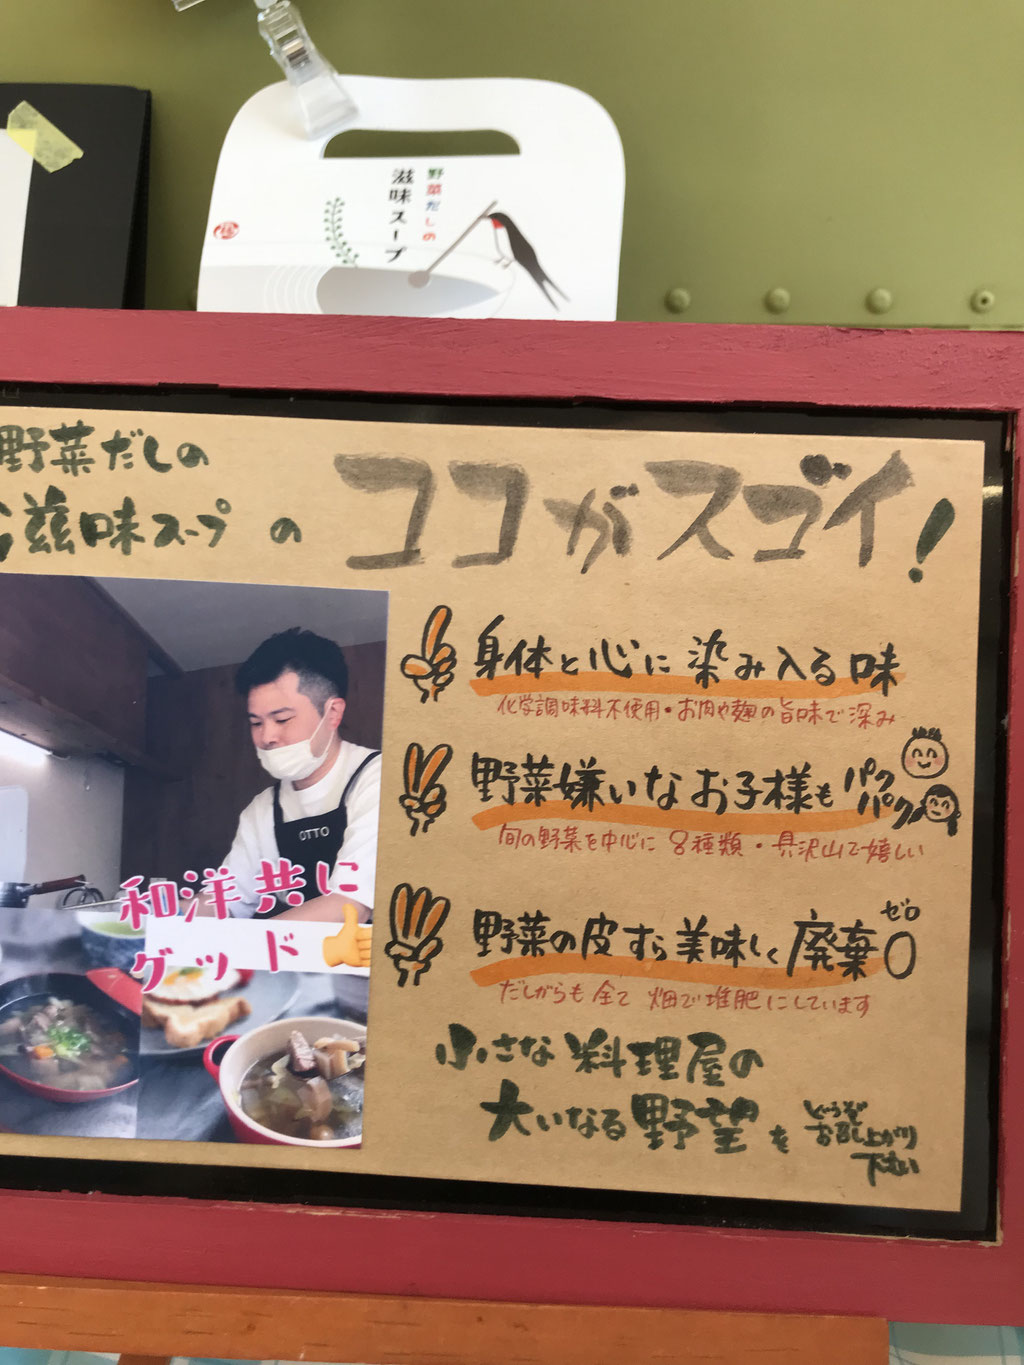 野菜だしの
滋味スープ
野菜だしの
滋味スープ の
ココがスゴイ!
身体と心に染み入る味
化学調味料不使用・お肉や麹の旨味で深み
野菜嫌いなお子様もパクパク
旬の野菜を中心に8種類・具沢山で嬉しい
野菜の皮すら美味しく廃棄0
ゼロ
だしがらも全て畑で堆肥にしています
小さな料理屋の
大いなる野望を
どうぞ
お召し上がり
下さい
OTTO
和洋共に
グッド